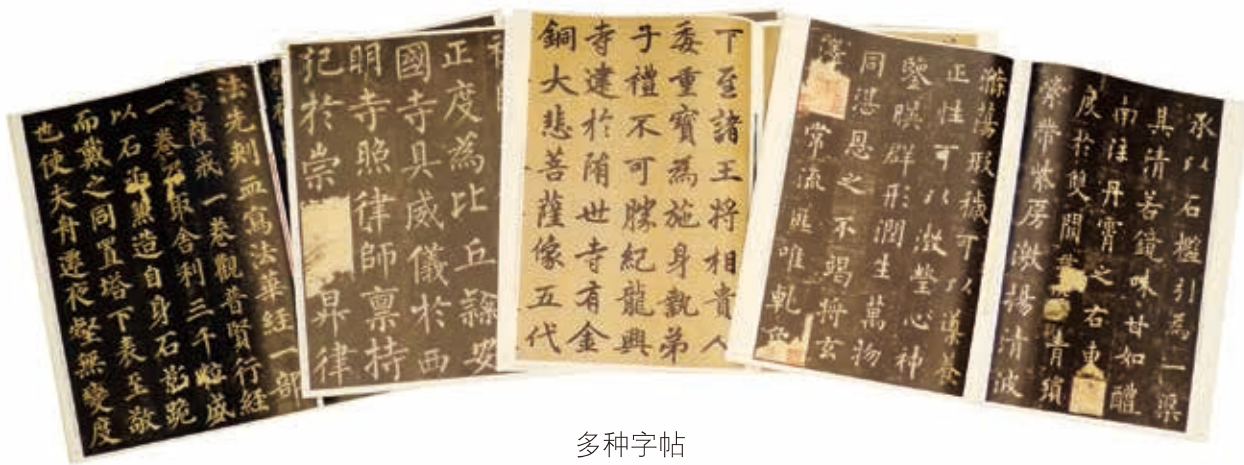 法先刺血寫法華經一部
菩薩戒一卷觀普賢行經
一卷乃取舍利三千粒盛
以石函兼造自身石影跪
而戴之同置塔下表至敬
也使夫舟遷夜壑無變度
正度為比丘隸安
國寺具威儀於西
明寺照律師禀持
犯於崇昇律
下至諸王將相貴人
委重寶為施身執弟
子禮不可勝紀龍興
寺建於隋世寺有金
銅大悲菩薩像五代
滌蕩瑕穢可以導養
正性可以澂瑩心神
鑒暎群形潤生萬物
同湛恩之不竭將玄
澤常流匪唯乾象
承以石檻引為一渠
其清若鏡味甘如醴
南注丹霄之右東
度於雙闕青瑣
縈帶紫房激揚清波
多种字帖